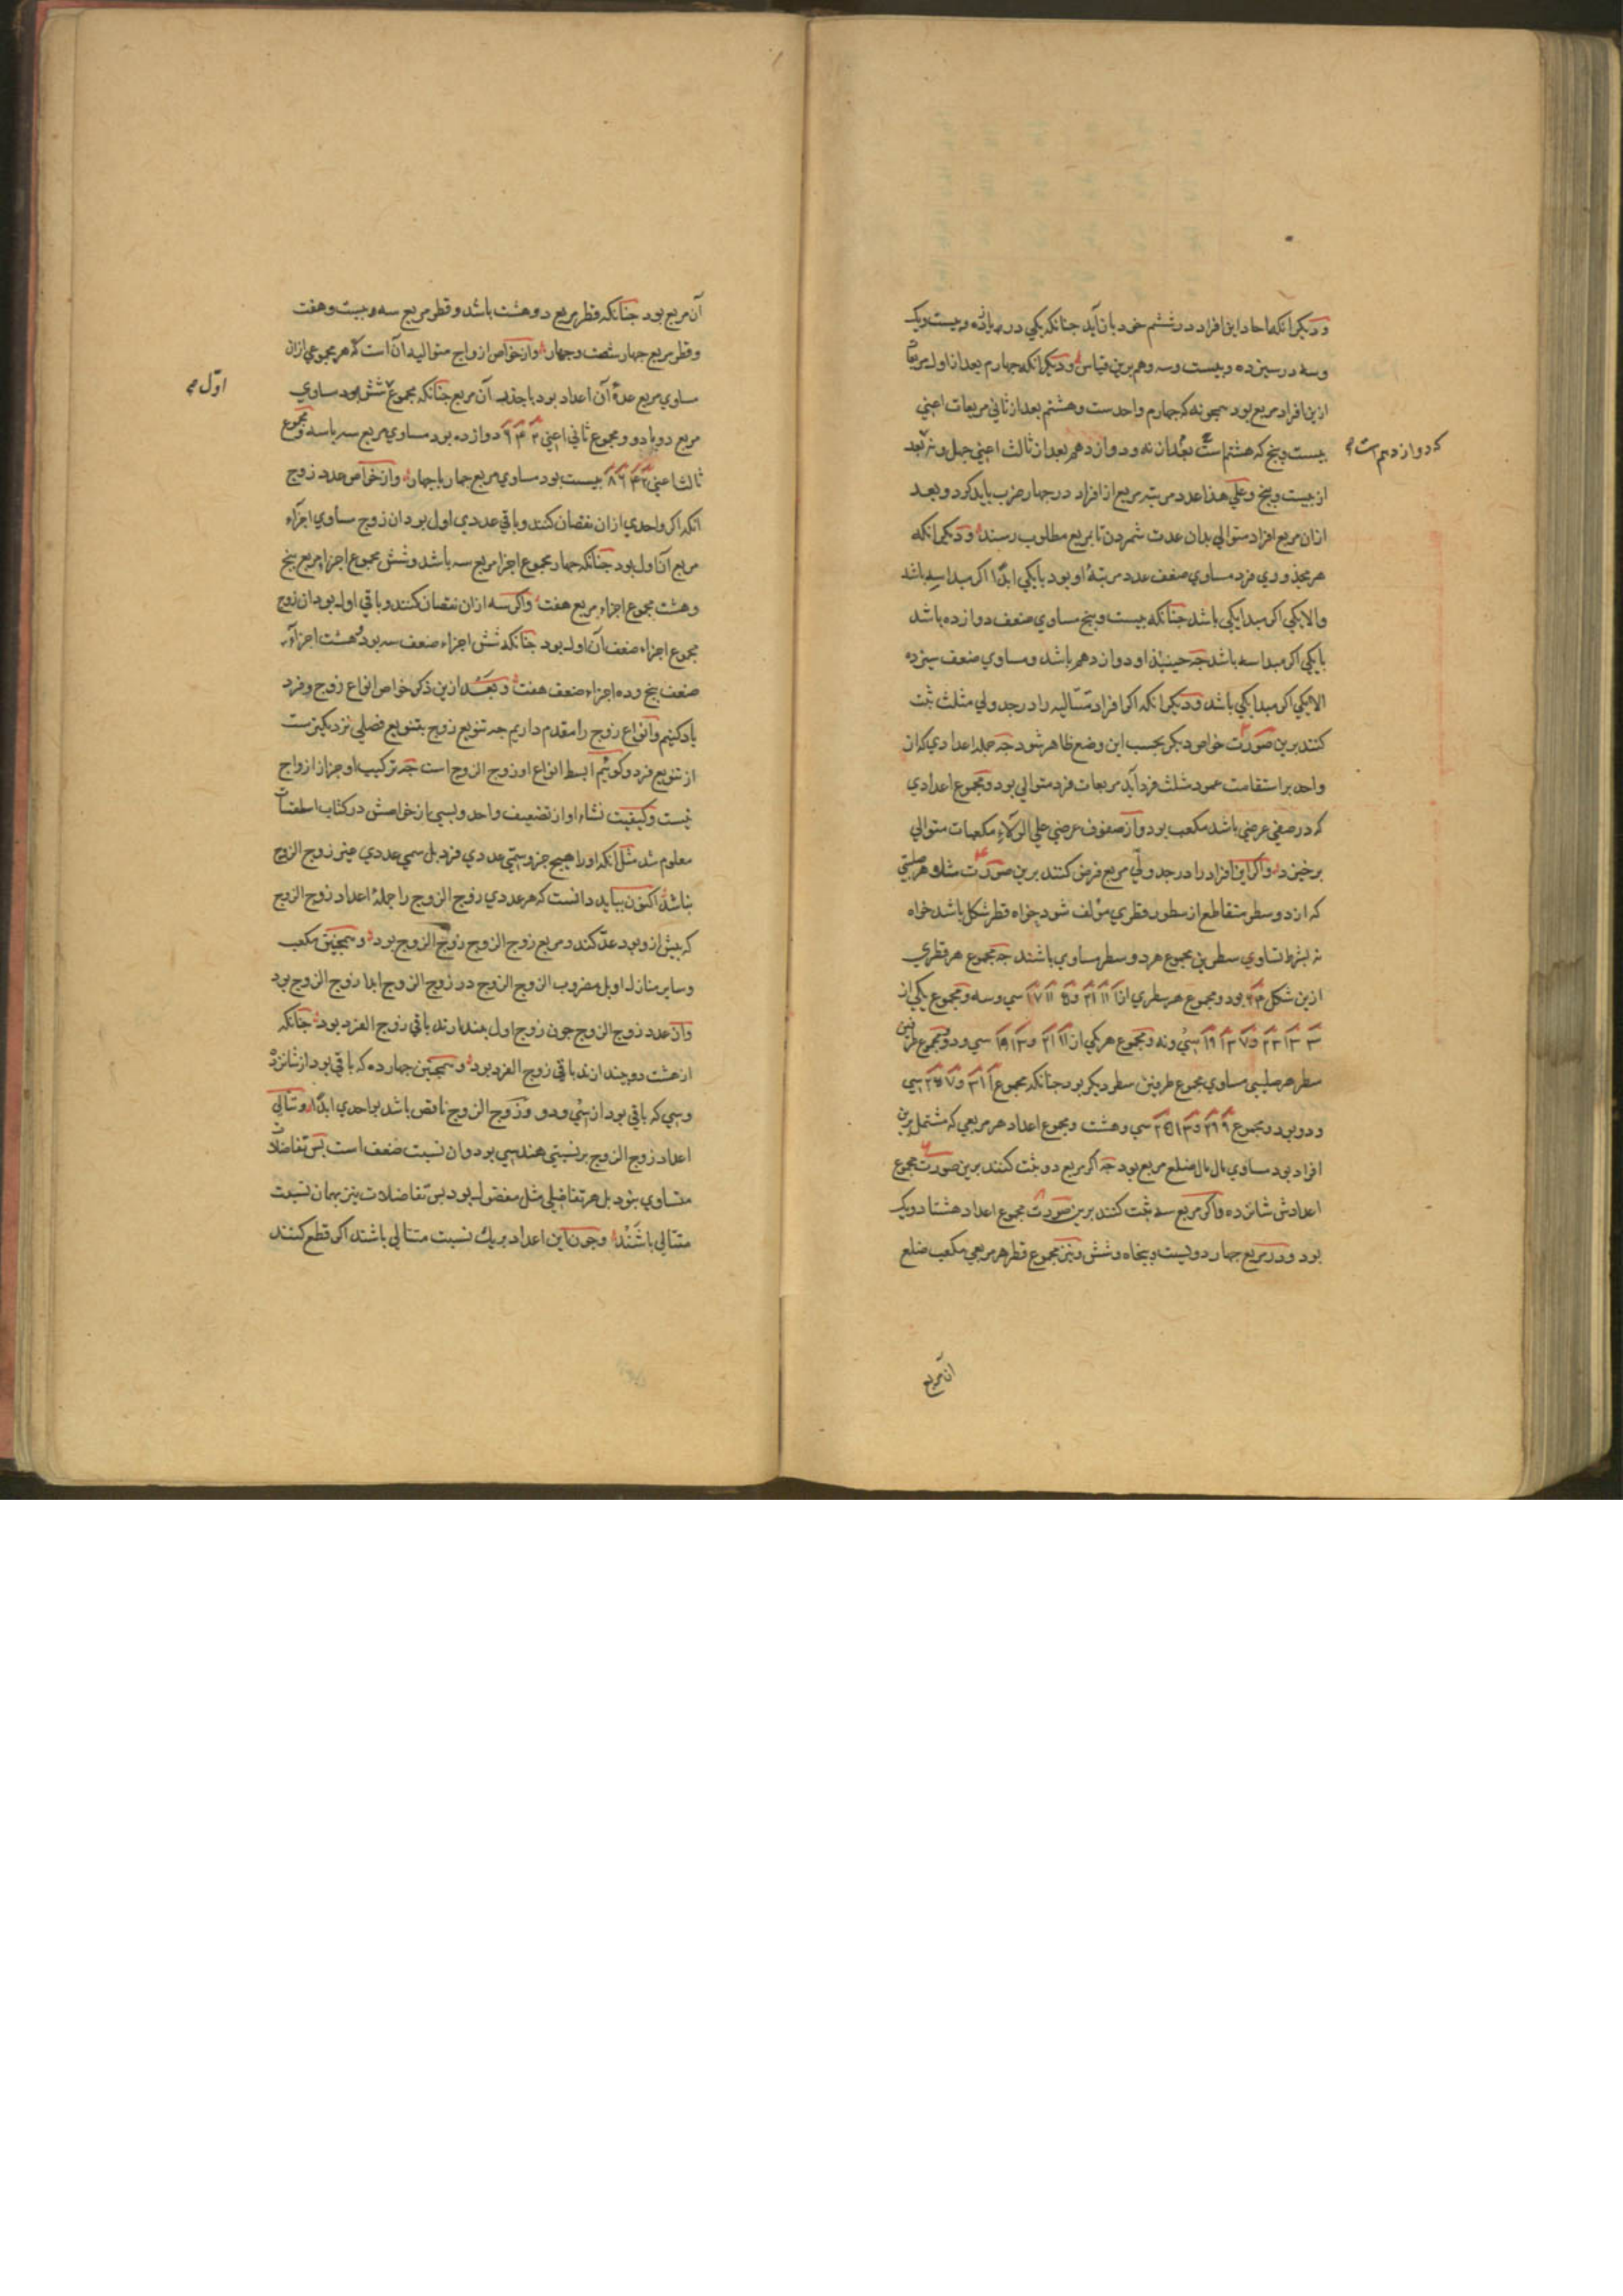 و دیکر آنکه احاد این افراد در ششم خود باز آید جنانکه یکی در یازده و بیست ویک
وسه در سیزده و بیست وسه وهم برین قیاس و دیکر انکه جهارم بعد از اول مربعات
ازین افراد مربع بود همجو نه که جهارم واحدست وهشتم بعد از ثانی مربعات اعنی
بیست وپنج که هشتم است بعد از نه ودوازدهم بعد از ثالث اعنی جهل ونه بعد
که دوازدهم است
از بیست وپنج وعلی هذا عدد مرتبه مربع از افراد در جهار ضرب باید کرد وبعد
ازان مربع افراد متوالی بدان عدت شمردن تا بمربع مطلوب رسند و دیکر انکه
هر مجذوری فرد مساوی ضعف عدد مرتبهٔ او بود با یکی ابدًا اکر مبدا سه باشد
والا یکی اکر مبدا یکی باشد جنانکه بیست وپنج مساوی ضعف دوازده باشد
با یکی اکر مبدا سه باشد جه حینئذ او دوازدهم باشد ومساوی ضعف سیزده
الا یکی اکر مبدا یکی باشد ودیکر انکه اکر افراد متتالیه را در جدولی مثلث ثبت
کنند برین صورت خواص دیکر بحسب این وضع ظاهر شود جه جمله اعدادی که از
واحد بر استقامت عمود مثلث فرد آید مربعات فرد متوالی بود ومجموع اعدادی
که در صفی عرضی باشد مکعب بود واز صفوف عرضی علی الولاء مکعبات متوالی
برخیزد واکر این افراد را در جدولی مربع فرض کنند برین صورت مثلا هر صلیبی
که از دو سطر متقاطع از سطور قطری مؤلف شود خواه قطر شکل باشد خواه
نه بشرط تساوی سطرین مجموع هر دو سطر مساوی باشند جه مجموع هر قطری
ازین شکل بود ومجموع هر سطری از سی وسه ومجموع یکی از
سی ونه ومجموع هر یکی از سی ودو ومجموع طرفین
سطر هر صلیبی مساوی مجموع طرفین سطر دیکر بود جنانکه مجموع سی
ودو بود ومجموع سی وهشت ومجموع اعداد هر مربعی که مشتمل برین
افراد بود مساوی مال مال ضلع مربع بود جه اکر مربع دو ثبت کنند برین صورت مجموع
اعدادش شانزده واکر مربع سه ثبت کنند برین صورت مجموع اعداد هشتاد ویک
بود ودر مربع جهار دویست وپنجاه وشش ونیز مجموع قطر هر مربعی مکعب ضلع
ان مربع
آن مربع بود جنانکه قطر مربع دو هشت باشد وقطر مربع سه بیست وهفت
وقطر مربع جهار شصت وجهار واز خواص ازواج متوالیه آن است که هر مجموعی ازان
مساوی مربع عدهٔ آن اعداد بود با جذر آن مربع جنانکه مجموع شش بود مساوی
اوّل
مربع دو با دو ومجموع ثانی اعنی ۲ ۴ ۶ دوازده بود مساوی مربع سه با سه ومجموع
ثالث اعنی ۲ ۴ ۶ ۸ بیست بود مساوی مربع جهار با جهار واز خواص عدد زوج
انکه اکر واحدی ازان نقصان کنند وباقی عددی اول بود ان زوج مساوی اجزاء
مربع آن اول بود جنانکه جهار مجموع اجزا مربع سه باشد وشش مجموع اجزاء مربع پنج
وهشت مجموع اجزاء مربع هفت واکر سه ازان نقصان کنند وباقی اول بود ان زوج
مجموع اجزاء ضعف آن اول بود جنانکه شش اجزاء ضعف سه بود وهشت اجزاء
ضعف پنج وده اجزاء ضعف هفت وبعد ازین ذکر خواص انواع زوج وفرد
یاد کنیم وانواع زوج را مقدم داریم جه تنویع زوج بتنویع فصلی نزدیکترست
از تنویع فرد وکوئیم ابسط انواع او زوج الزوج است جه ترکیب او جز از ازواج
نیست وکیفیت نشاء او از تضعیف واحد وبسی از خواصش در کتاب اسطقسات
معلوم شد مثل انکه او را هیج جزو سمّی عددی فرد بل سمی عددی غیر زوج الزوج
نباشد اکنون بباید دانست که هر عددی زوج الزوج را جملهٔ اعداد زوج الزوج
که بیش ازو بود عدّ کند ومربع زوج الزوج زوج الزوج بود وهمجنین مکعب
وسایر منازل او بل مضروب الزوج الزوج در زوج الزوج ابدا زوج الزوج بود
وان عدد زوج الزوج جون زوج اول بیندازند باقی زوج الفرد بود جنانکه
از هشت دو بیندازند باقی زوج الفرد بود وهمجنین جهارده که باقی بود از شانزده
وسی که باقی بود از سی ودو وزوج الزوج ناقص باشد بواحدی ابدًا وتتالی
اعداد زوج الزوج بر نسبتی هندسی بود وان نسبت ضعف است بس تفاضلات
متساوی نبود بل هر تفاضلی مثل مفضول بود بس تفاضلات نیز بهمان نسبت
متتالی باشند وجون این اعداد بر یک نسبت متتالی باشند اکر قطع کنند